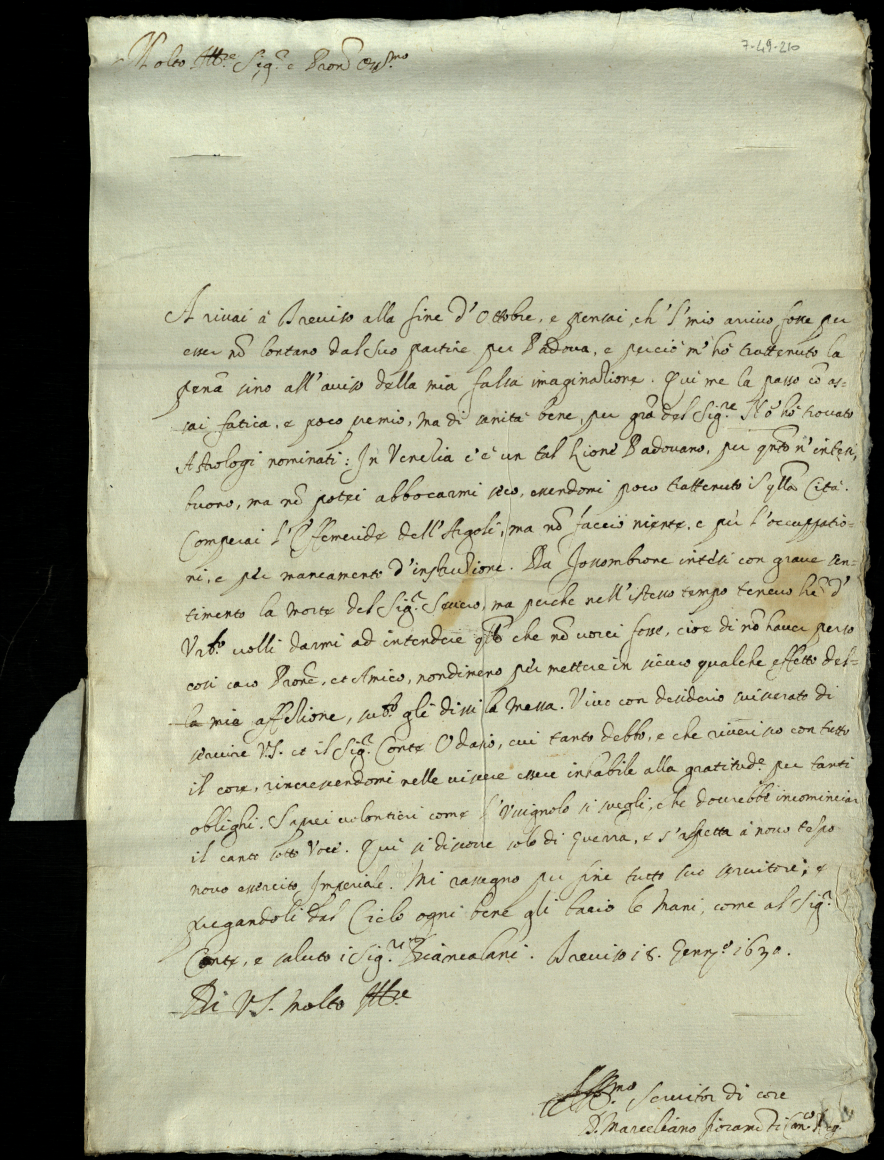 7-49-210
Molto Ill.re Sig.r e Pron̄ Oss.mo
Arrivai à Treviso alla fine d'Ottobre, e pensai, ch'l'mio arrivo fosse per
esser nō lontano dal suo partire per Padova, e perciò m'hò trattenuto la
pena sino all'aviso della mia falsa imaginatione. Qui me la passo cō as=
sai fatica, e poco premio, ma di sanità bene, per grā del Sig.re Nō hò trovato
Astrologi nominati: In Venetia c'è un tal Lione Padovano, per qnto n'intesi,
buono, ma nō potei abboccarmi seco, essendomi poco trattenuto ī qlla Cità.
Comperai l'Effemeride dell'Argoli, ma nō faccio niente, e per l'occupatio=
ni, e per mancamento d'instrutione. Da Fossombrone intesi con grave sen=
timento la morte del Sig.r Severo, ma perche nell'istesso tempo tenevo
Urb.o volli darmi ad intendere che nō vorei fosse, cioe di nō haver perso
cosi caro Prone, et Amico, nondimeno per mettere in sicuro qualche effetto del=
la mia affetione, sub.o gli dissi la messa. Vivo con desiderio sviscerato di
servire V.S. et il Sig.r Conte Odasio, cui tanto debbo, e che riverisco con tutto
il core, rincrescendomi nelle viscere essere inhabile alla gratitud.e per tanti
oblighi. Saprei volontieri come l'Usignolo si svegli, che dovrebbe incominciar
il canto sotto voce. Qui si discorre solo di guerra, e s'aspetta à novo tēpo
novo essercito Imperiale. Mi rassegno per fine tutto suo servitore, e
pregandoli dal Cielo ogni bene gli bacio le mani, come al Sig.r
Conte, e saluto i Sig.ri Biancalani. Treviso 18. Genn.o 1630.
Di V.S. Molto Ill.re
Aff.mo Servitor di core
D. Marcelliano